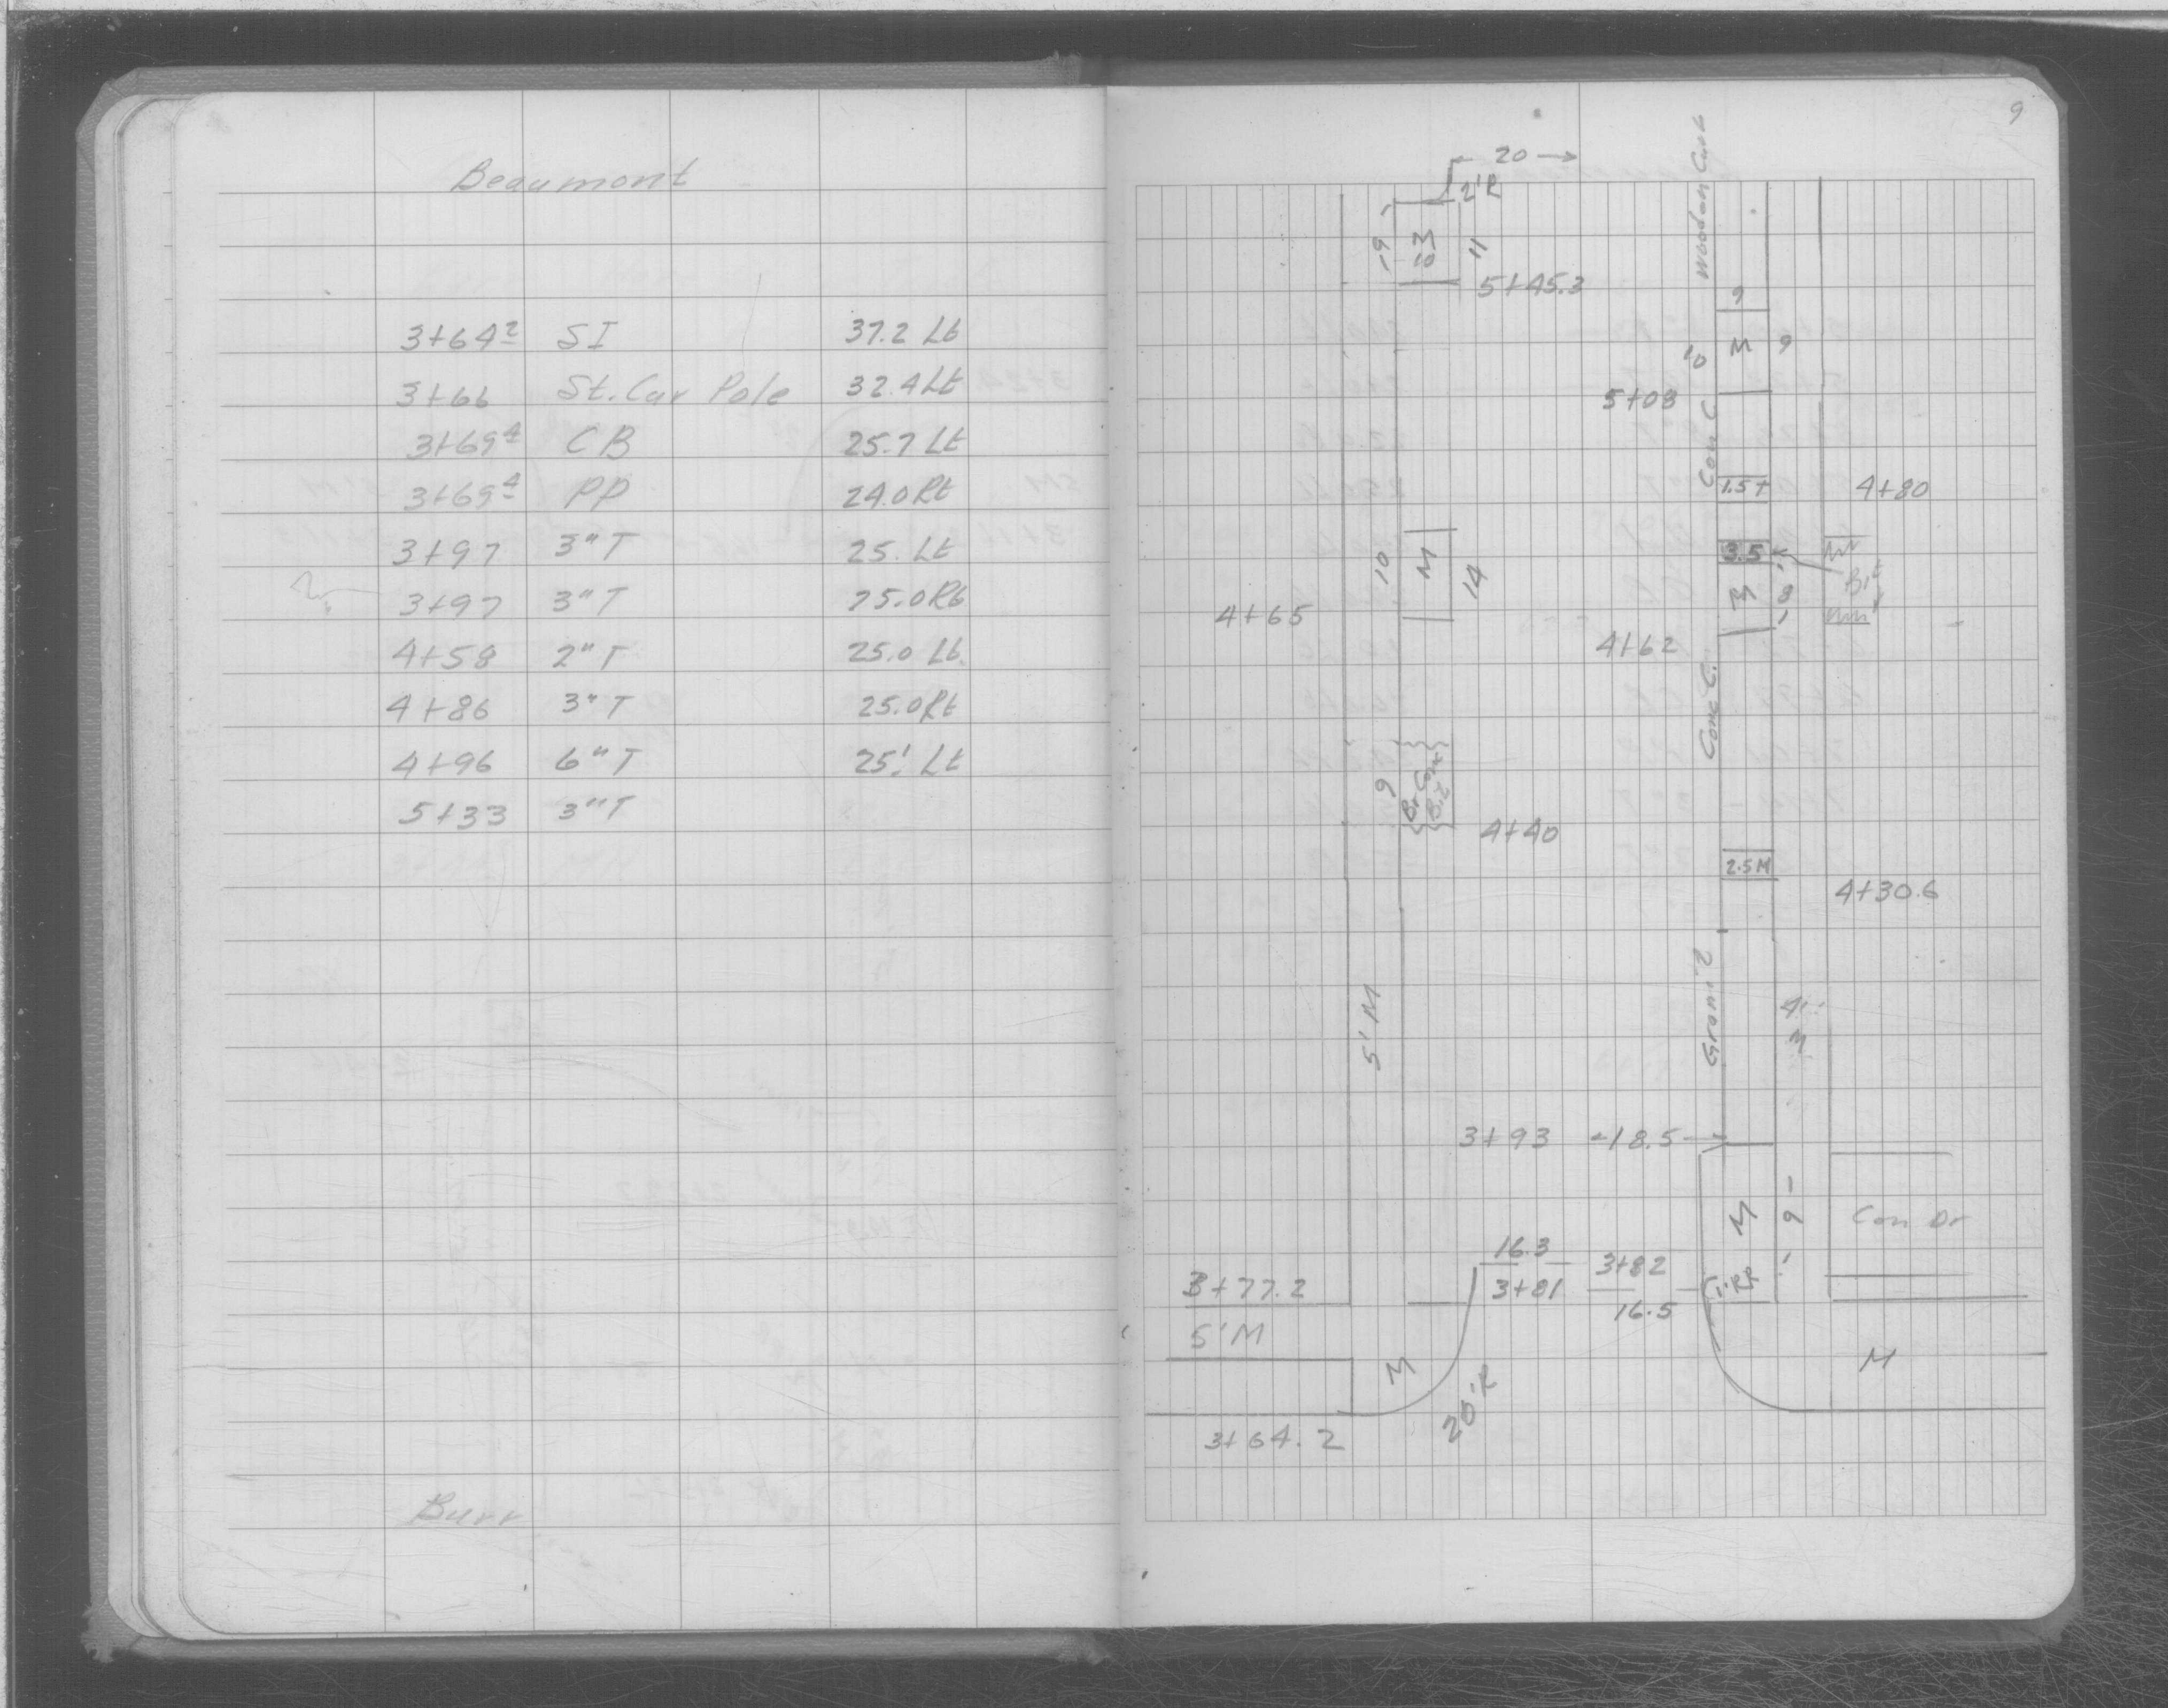 Beaumont
3+64² SI 37.2 Lt
3+66 St. Car Pole 32.4 Lt
3+69⁴ CB 25.7 Lt
3+69⁴ PP 24.0 Rt
3+97 3" T 25. Lt
3+97 3" T 25.0 Rt
4+58 2" T 25.0 Lt.
4+86 3" T 25.0 Rt
4+96 6" T 25' Lt
5+33 3" T
Burr
9
20
2'R
19
M
11
5+45.3
Wooden Curb
9
M
9
10
5+08
Con C
1.5 T
4+80
3.5
M
8
10
M
14
4+65
4+62
Conc C.
9
4+40
2.5 M
4+30.6
5' M
4'
M
3+93 18.5
M
9
Con Dr
16.3
3+81
3+82
16.5
3+77.2
5' M
M
20'R
M
3+64.2